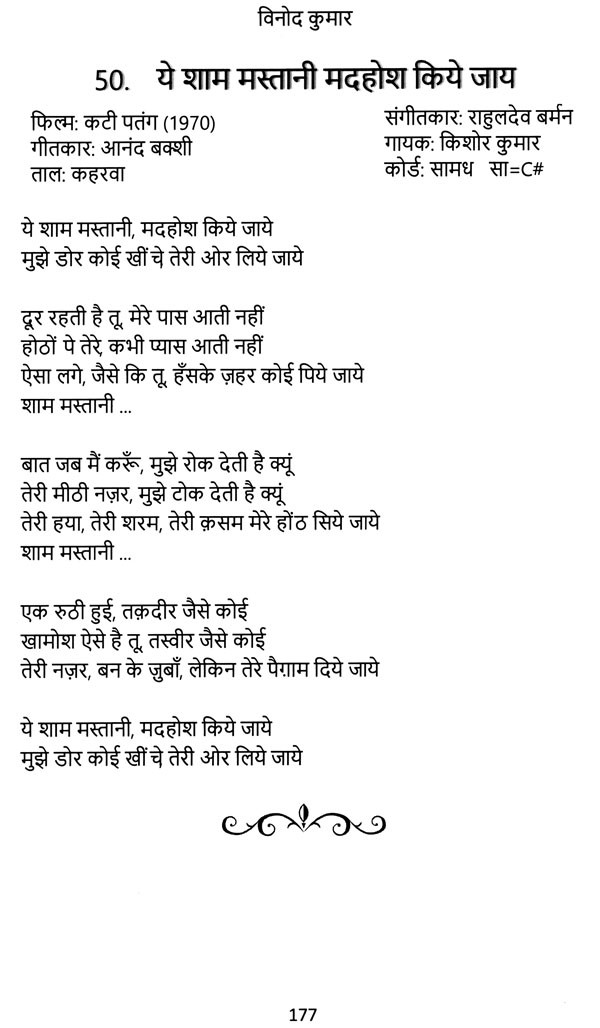 विनोद कुमार
50. ये शाम मस्तानी मदहोश किये जाय
फिल्म: कटी पतंग (1970)
गीतकार: आनंद बक्शी
ताल: कहरवा
संगीतकार: राहुलदेव बर्मन
गायक: किशोर कुमार
कोर्ड: सामध सा=C#
ये शाम मस्तानी, मदहोश किये जाये
मुझे डोर कोई खींचे, तेरी ओर लिये जाये
दूर रहती है तू, मेरे पास आती नहीं
होठों पे तेरे, कभी प्यास आती नहीं
ऐसा लगे, जैसे कि तू, हँसके ज़हर कोई पिये जाये
शाम मस्तानी ...
बात जब मैं करूँ, मुझे रोक देती है क्यूं
तेरी मीठी नज़र, मुझे टोक देती है क्यूं
तेरी हया, तेरी शरम, तेरी क़सम मेरे होंठ सिये जाये
शाम मस्तानी ...
एक रुठी हुई, तक़दीर जैसे कोई
खामोश ऐसे है तू, तस्वीर जैसे कोई
तेरी नज़र, बन के ज़ुबाँ, लेकिन तेरे पैग़ाम दिये जाये
ये शाम मस्तानी, मदहोश किये जाये
मुझे डोर कोई खींचे, तेरी ओर लिये जाये
177